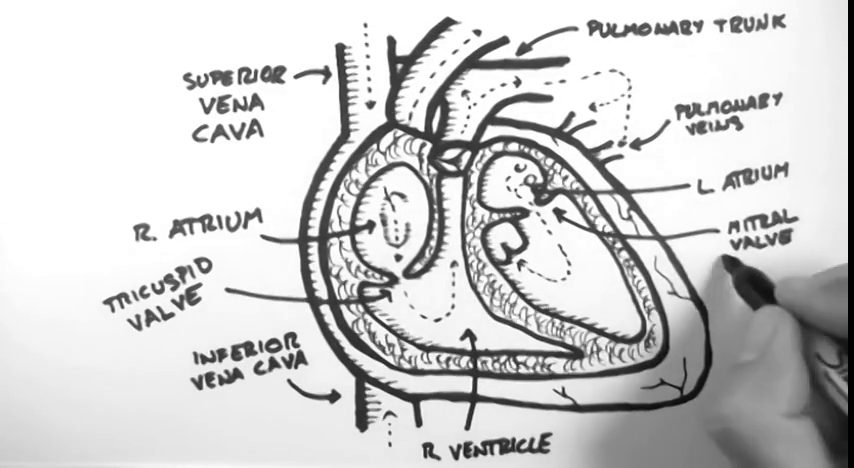 PULMONARY TRUNK
SUPERIOR
VENA
CAVA
PULMONARY
VEINS
L. ATRIUM
R. ATRIUM
MITRAL
VALVE
TRICUSPID
VALVE
INFERIOR
VENA CAVA
R VENTRICLE